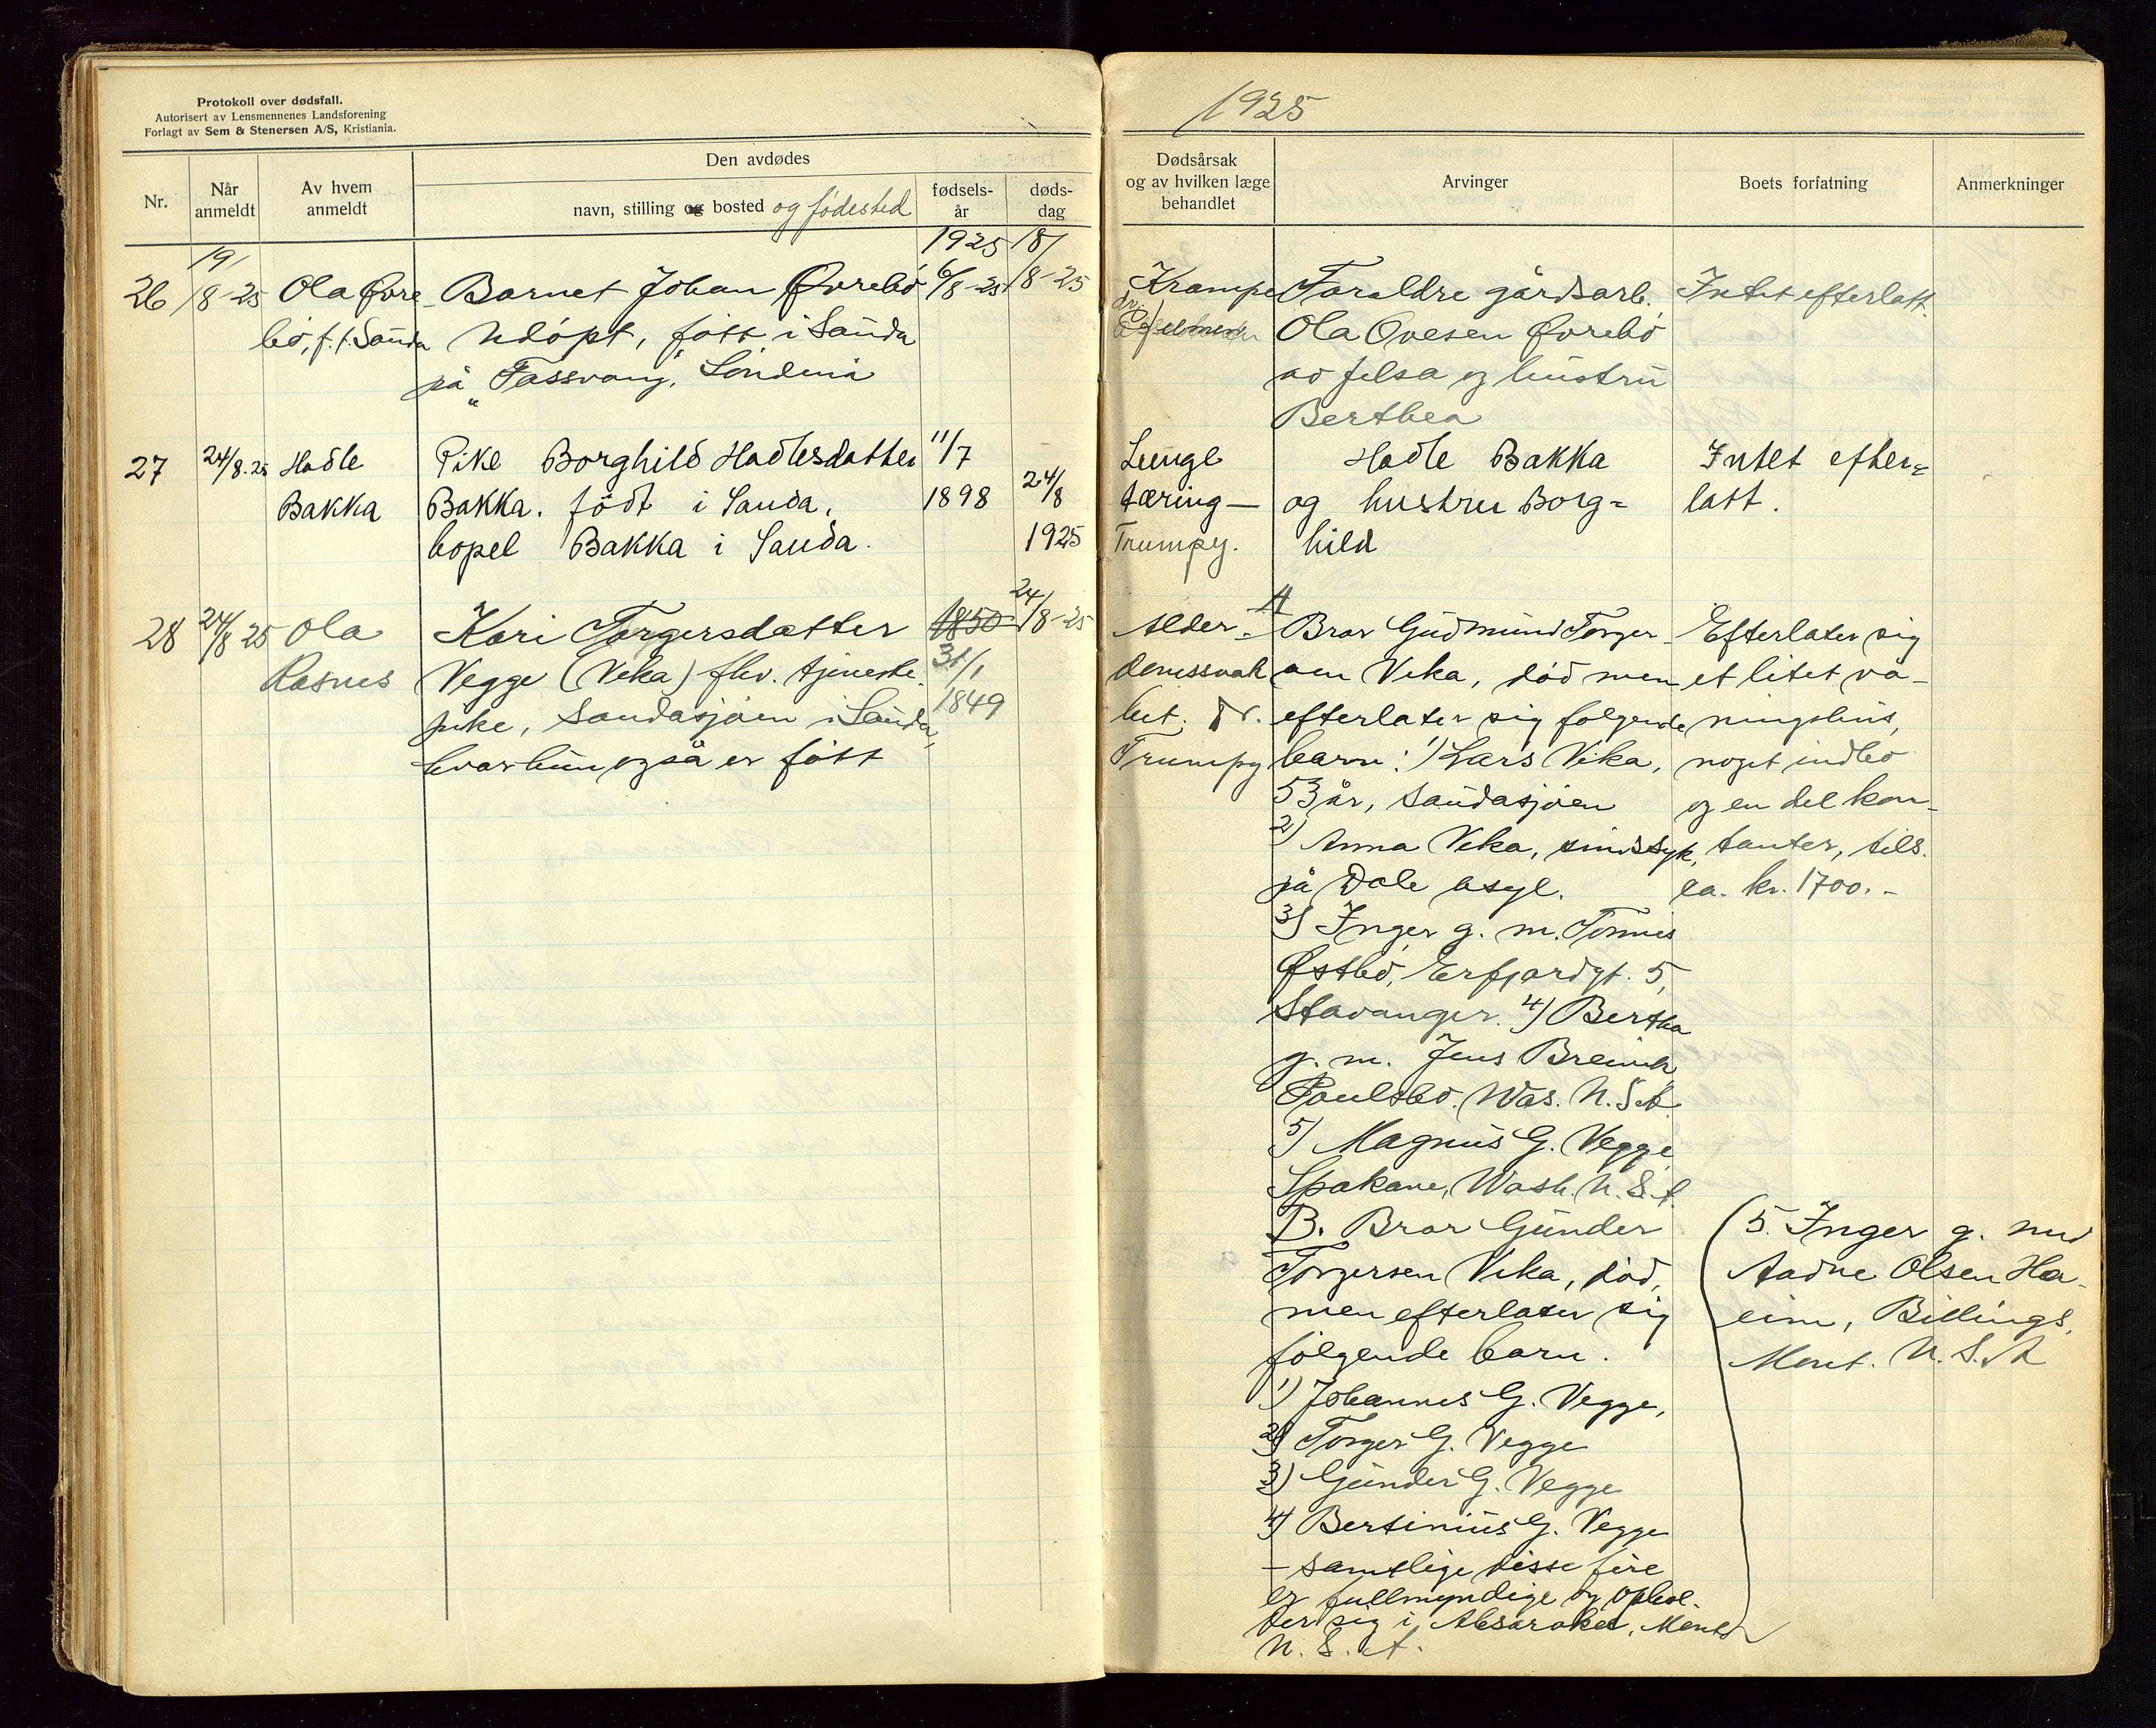 Protokoll over dødsfall.
Autorisert av Lensmennenes Landsforening
Forlagt av Sem & Stenersen A/S, Kristiania.
Nr.
Når anmeldt
Av hvem anmeldt
Den avdødes
navn, stilling og bosted og fødested
fødsels-år
døds-dag
26
19/8-25
Ola Øvre-
bö, f.t. Sauda
Barnet Johan Øvrebö
Udöpt, fött i Sauda
på „Fassvang“, Söndenå
1925
6/8-25
18/8-25
27
24/8.25
Hadle
Bakka
Pike Borghild Hadlesdatter
Bakka. födt i Sauda,
bopel Bakka i Sauda.
11/7
1898
24/8
1925
28
24/8 25
Ola
Rasnes
Kari Torgersdatter
Vegge (Veka) fhv. tjeneste-
pike, Saudasjöen i Sauda,
hvor hun også er fött
1850
31/1
1849
24/8-25
1925
Dødsårsak
og av hvilken læge
behandlet
Arvinger
Boets forfatning
Anmerkninger
Krampe
dr.
Foreldre gårdsarb.
Ola Ovesen Øvrebö
av Jelsa og hustru
Berthea
Intet efterlatt.
Lunge
tæring —
Trumpy.
Hadle Bakka
og hustru Borg=
hild
Intet efter=
latt.
Alder-
domssvak
het. Dr.
Trumpy
A
Bror Gudmund Torger-
sen Veka, död men
efterlater sig folgende
barn: 1) Lars Vika,
53 år, Saudasjöen
2) Anna Veka, sinssyk,
på Dale asyl.
3) Inger g. m. Tönnes
Østbö, Erfjordgt. 5,
Stavanger. 4) Bertha
g. m. Jens Breivik
Poulsbo. Was. U.S.A.
5) Magnus G. Vegge,
Spokane, Wash. U.S.A.
B. Bror Gunder
Torgersen Veka, död,
men efterlater sig
følgende barn.
1) Johannes G. Vegge,
2) Torger G. Vegge
3) Gunder G. Vegge
4) Bertinius G. Vegge
– samtlige disse fire
er fullmyndige og ophol-
der sig i Absarokee, Mont.
U. S. A.
Efterlater sig
et litet vå-
ningshus,
noget indbo
og en del kon-
tanter, tils.
ca. kr. 1700.-
(5. Inger g. med
Aadne Olsen Ha-
eim, Billings,
Mont. U.S.A